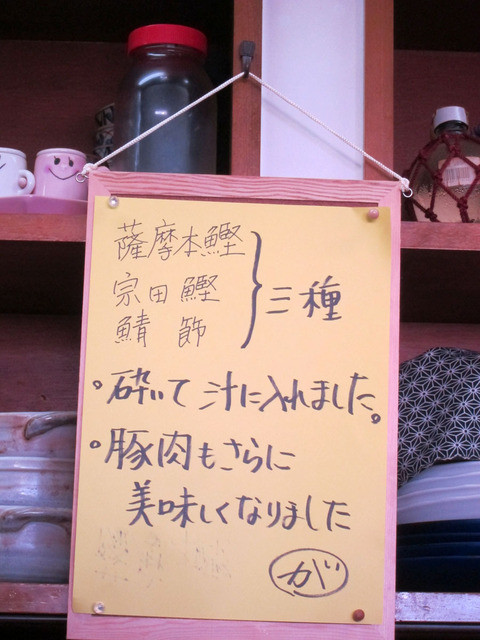 薩摩本鰹
宗田鰹 } 三種
鯖節
。砕いて汁に入れました。
。豚肉もさらに
美味しくなりました
が